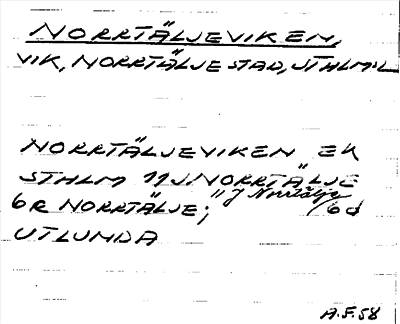 NORRTÄLJEVIKEN,
VIK, NORRTÄLJE STAD, STHLM:L
NORRTÄLJEVIKEN EK
STHLM 11J NORRTÄLJE
6R NORRTÄLJE; 11 J Norrtälje/6d
UTLUNDA
A.F.58